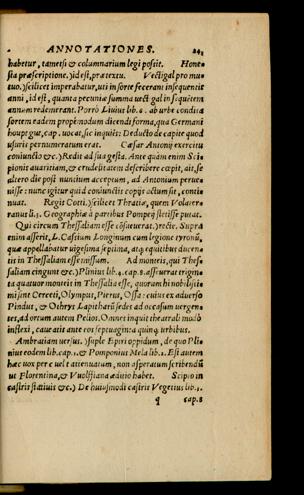 ANNOTATIONES. 243
habetur, tametsi & columnarium legi possit. Hone
sta præscriptione.) id est, prætextu. Vectigal pro mu
tuo.) scilicet imperabatur, uti in sorte fecerant insequentis
anni, id est, quanta pecuniæ summa vectigal in sequētem
annum redemerant. Porrò Livius lib. ab urbe condita
sortem eadem propemodum dicendi forma, qua Germani
houptgut, cap. vocat, sic inquit: Deducto de capite quod
usuris pernumeratum erat. Cæsar Antonij exercitu
coniuncto &c.) Redit ad sua gesta. Ante quàm enim Sci
pionis avaritiam, & crudelitatem describere cœpit, ait, se
altero die post nuncium acceptum, ad Antonium perue
nisse: nunc igitur quid coniunctis copijs actum sit, conti
nuat. Regis Cotti.) scilicet Thratiæ, quem Volater
ranus li.3. Geographiæ à partibus Pompeij stetisse putat.
Qui circum Thessaliam esse cōsueuerat.) recte. Supra
enim asserit, L. Cassium Longinum cum legione tyronū,
quæ appellabatur uigesima septima, atq; equitibus ducen
tis in Thessaliam esse missum. Ad monteis, qui Thes
saliam cingunt &c.) Plinius lib.4. cap.8. asseuerat trigin
ta quatuor monteis in Thessalia esse, quorum hi nobilissi
mi sint Cerceti, Olympus, Pierus, Ossa: cuius ex aduerso
Pindus, & Othrys Lapitharū sedes ad occasum uergen
tes, ad ortum autem Pelios. Omnes inquit theatrali modo
inflexi, cauatis ante eos septuaginta quinq; urbibus.
Ambratiam uersus.) supple Epiri oppidum, de quo Pli
nius eodem lib. cap.1. & Pomponius Mela lib.2. Est autem
hæc uox per c uel t attenuatum, non asperatum scribendū
ut Florentina, & Vuolffiana æditio habet. Scipio in
castris statiuis &c.) De huiusmodi castris Vegetius lib.3.
q cap.8